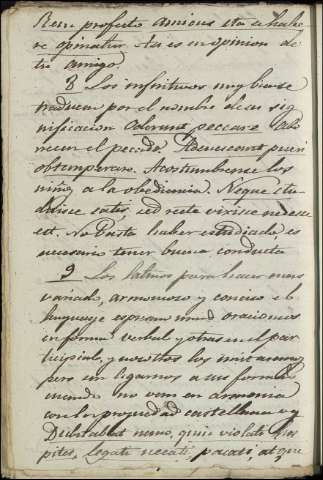 Rem profecto amicus ita se habe
re opinatur. Asi es en opinion de
tu amigo.
8 Los infinitivos muy bien se
traducen por el nombre de su sig
nificacion Oderunt peccare Abo
rrecen el pecado. Assuescant pueri
obtemperare. Acostumbrense los
niños a la obediencia. Neque stu
duisse satis, sed recte vixisse necesse
est. No basta haber estudiado, es
necesario tener buena conducta
9 Los latinos para hacer mas
variado, armonioso y conciso el
lenguaje espresan unas oraciones
en forma verbal y otras en el par
ticipial, y nosotros los imitaremos
pero sin ligarnos a sus formas
cuando no vayan en armonia
con la propiedad castellana v g
Dubitabat nemo, quin violati hos
pites, legati necati, pacati, atque